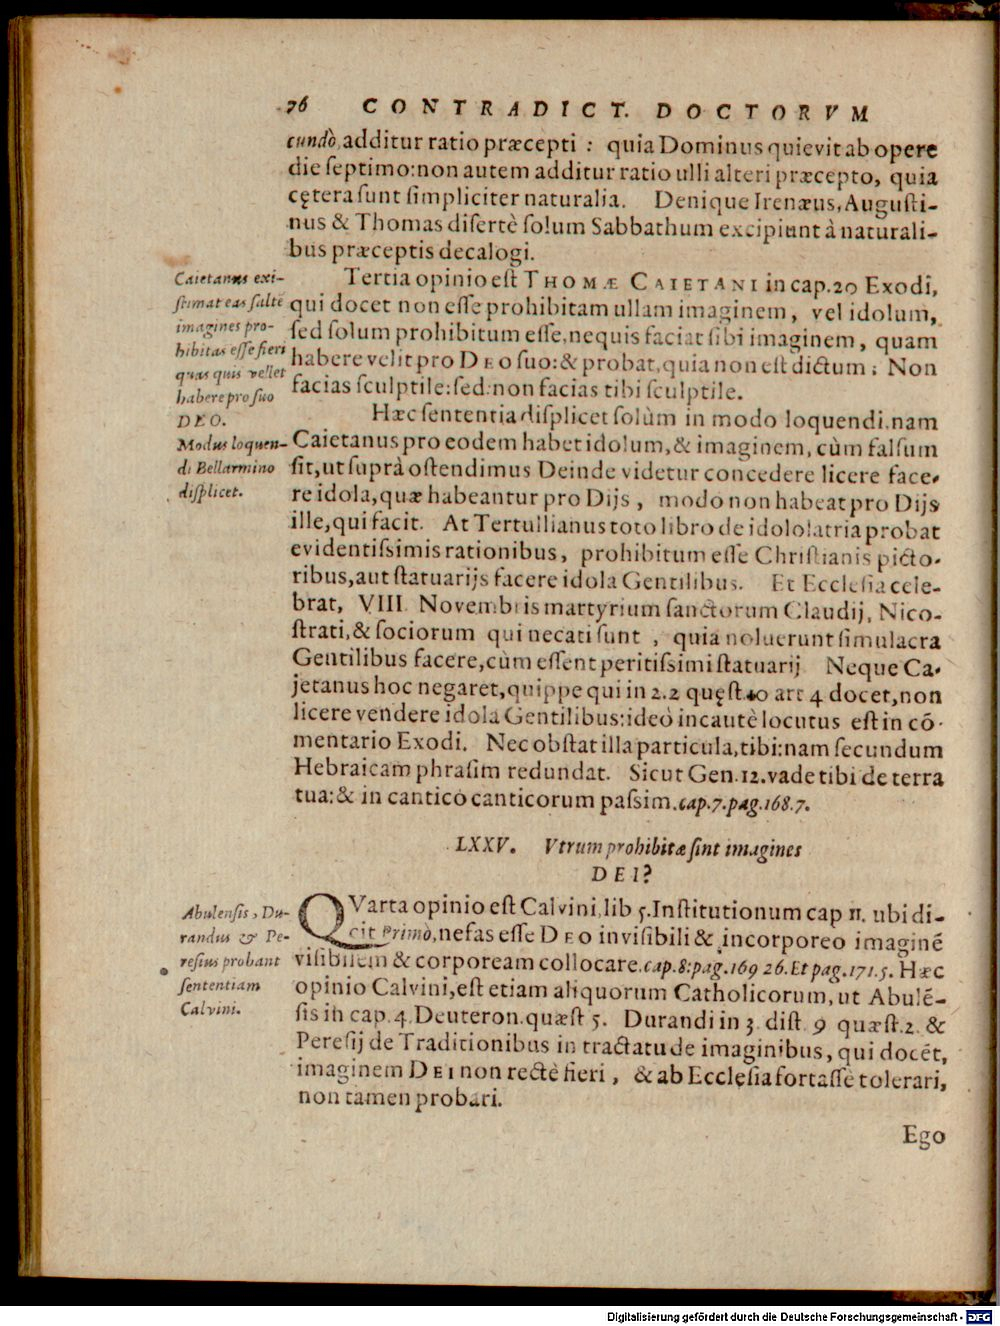 76 CONTRADICT. DOCTORVM
cundò additur ratio præcepti : quia Dominus quievit ab opere
die ſeptimo: non autem additur ratio ulli alteri præcepto, quia
cętera ſunt ſimpliciter naturalia. Denique Irenæus, Auguſti-
nus & Thomas diſertè ſolum Sabbathum excipiunt à naturali-
bus præceptis decalogi.
Caietanus exi-
ſtimat eas ſaltē
imagines pro-
hibitas eſſe fieri
quas quis vellet
habere pro ſuo
DEO.
Tertia opinio eſt THOMÆ CAIETANI in cap. 20 Exodi,
qui docet non eſſe prohibitam ullam imaginem, vel idolum,
ſed ſolum prohibitum eſſe, nequis faciat ſibi imaginem, quam
habere velit pro DEO ſuo: & probat, quia non eſt dictum; Non
facias ſculptile: ſed: non facias tibi ſculptile.
Modus loquen-
di Bellarmino
diſplicet.
Hæc ſententia diſplicet ſolùm in modo loquendi. nam
Caietanus pro eodem habet idolum, & imaginem, cùm falſum
ſit, ut ſuprà oſtendimus Deinde videtur concedere licere face-
re idola, quæ habeantur pro Dijs, modo non habeat pro Dijs
ille, qui facit. At Tertullianus toto libro de idololatria probat
evidentiſsimis rationibus, prohibitum eſſe Chriſtianis picto-
ribus, aut ſtatuarijs facere idola Gentilibus. Et Eccleſia cele-
brat, VIII Novembris martyrium ſanctorum Claudij, Nico-
ſtrati, & ſociorum qui necati ſunt , quia noluerunt ſimulacra
Gentilibus facere, cùm eſſent peritiſsimi ſtatuarij Neque Ca-
jetanus hoc negaret, quippe qui in 2.2 quęſt. 40 art 4 docet, non
licere vendere idola Gentilibus: ideò incautè locutus eſt in cō-
mentario Exodi. Nec obſtat illa particula, tibi: nam ſecundum
Hebraicam phraſim redundat. Sicut Gen. 12. vade tibi de terra
tua: & in cantico canticorum paſsim. cap. 7. pag. 168. 7.
LXXV. Vtrum prohibitæ ſint imagines
DEI?
Abulenſis, Du-
randus & Pe-
reſius probant
ſententiam
Calvini.
QVarta opinio eſt Calvini, lib 5. Inſtitutionum cap 11. ubi di-
cit Primò, nefas eſſe DEO inviſibili & incorporeo imaginē
viſibilem & corpoream collocare. cap. 8: pag. 169 26. Et pag. 171. 5. Hæc
opinio Calvini, eſt etiam aliquorum Catholicorum, ut Abulē-
ſis in cap. 4. Deuteron. quæſt 5. Durandi in 3. diſt. 9 quæſt. 2. &
Pereſij de Traditionibus in tractatu de imaginibus, qui docēt,
imaginem DEI non rectè fieri, & ab Eccleſia fortaſſè tolerari,
non tamen probari.
Ego
Digitalisierung gefördert durch die Deutsche Forschungsgemeinschaft - DFG